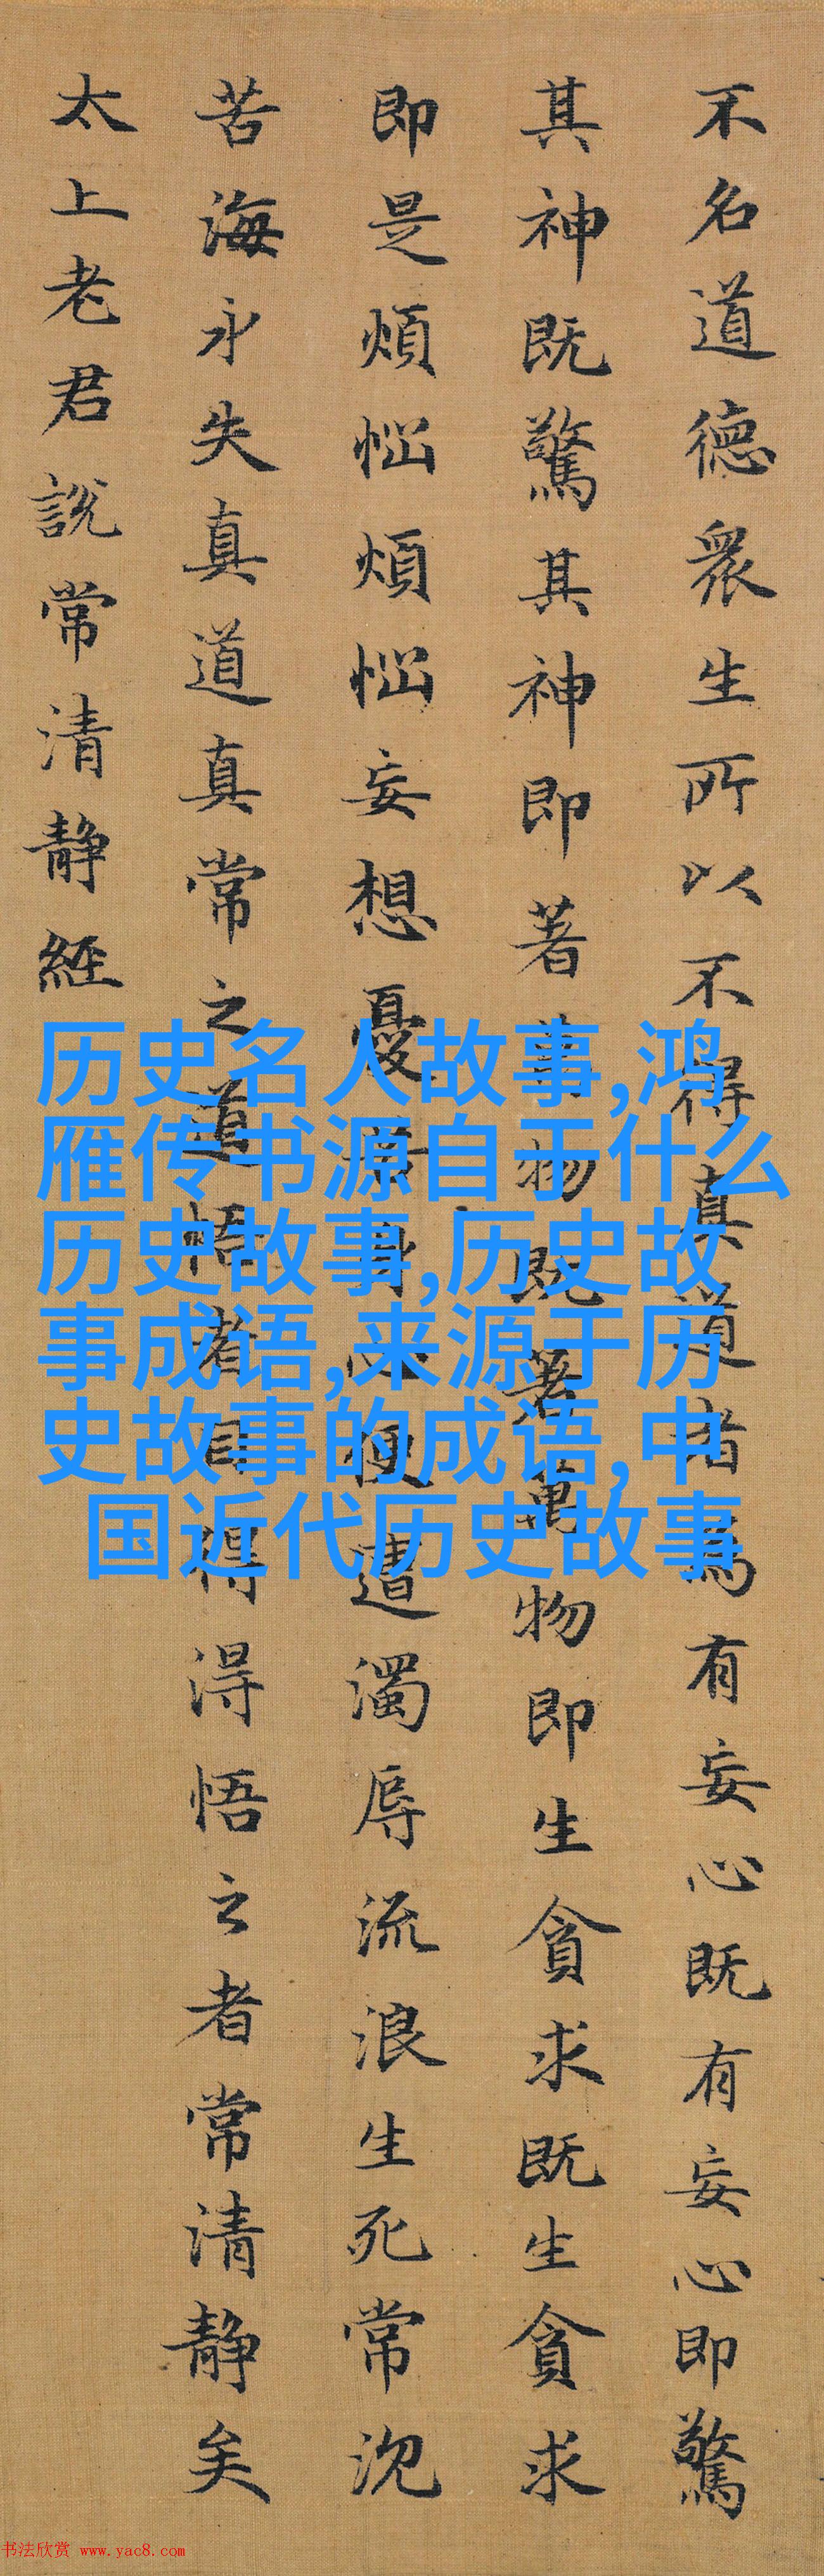 不名道德眾生所以不得真道者為有妄心既有妄心即驚
其神既驚其神即著萬物既著萬物即生貪求既生貪求
即是煩惱煩惱妄想憂苦身心便遭濁辱流浪生死常沉
苦海永失真道真常之道悟者自得得悟之者常清静矣
太上老君說常清静經
历史名人故事,鸿
雁传书源自于什么
历史故事,历史故
事成语,来源于历
史故事的成语,中
国近代历史故事
书法欣赏 www.yac8.com